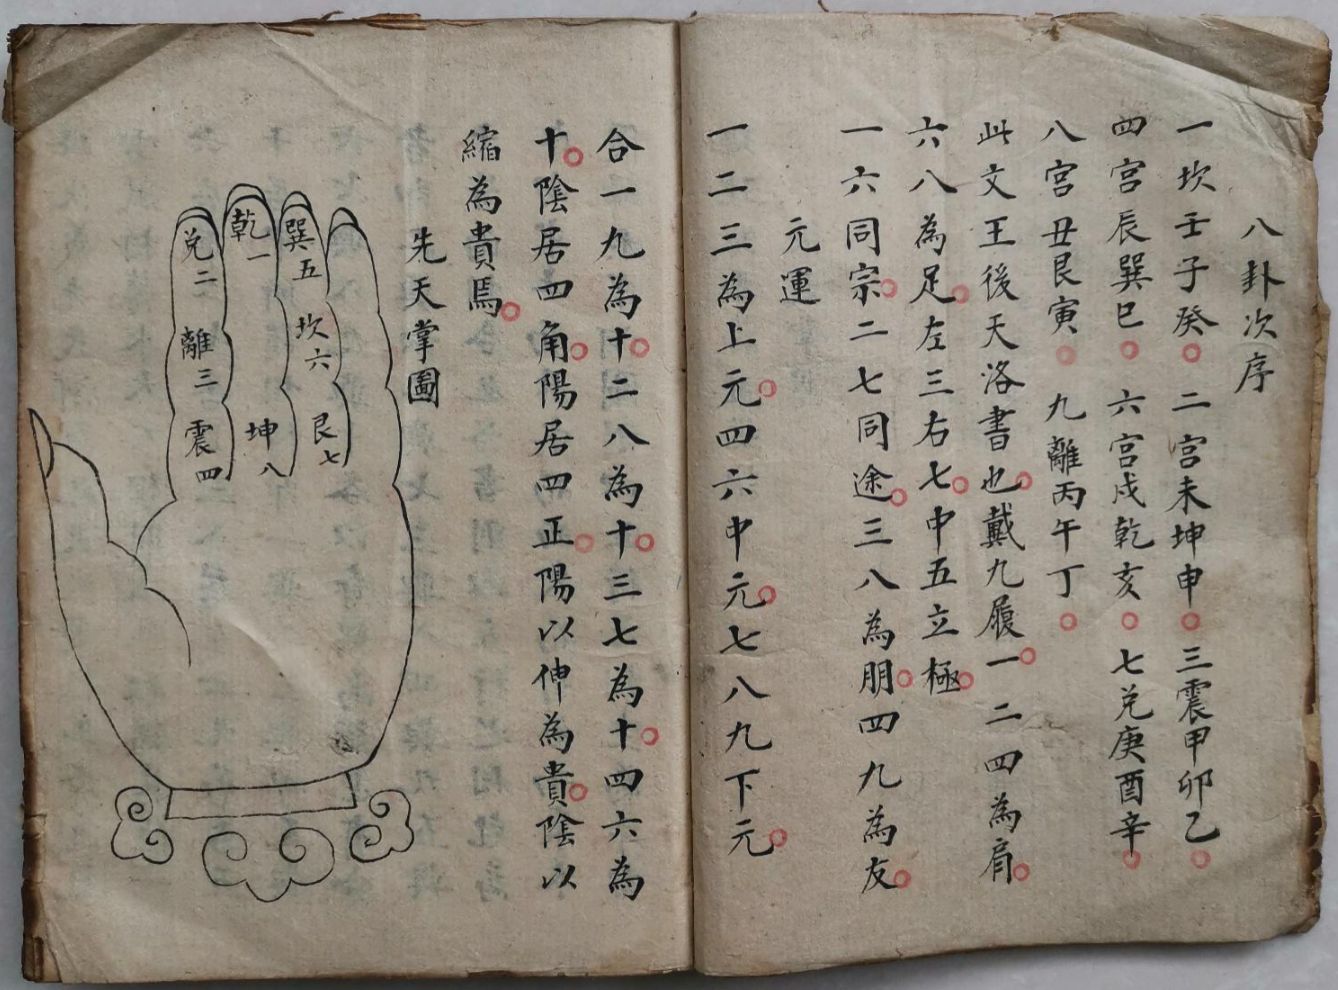 八卦次序
一坎壬子癸。二宮未坤申。三震甲卯乙。
四宮辰巽巳。六宮戌乾亥。七兌庚酉辛。
八宮丑艮寅。九離丙午丁。
此文王後天洛書也。戴九履一。二四為肩。
六八為足。左三右七。中五立極。
一六同宗。二七同途。三八為朋。四九為友。
元運
一二三為上元。四六中元。七八九下元。
合一九為十。二八為十。三七為十。四六為
十。陰居四角。陽居四正。陽以伸為貴。陰以
縮為貴焉。
先天掌圖
巽五
坎六
艮七
乾一
坤八
兌二
離三
震四